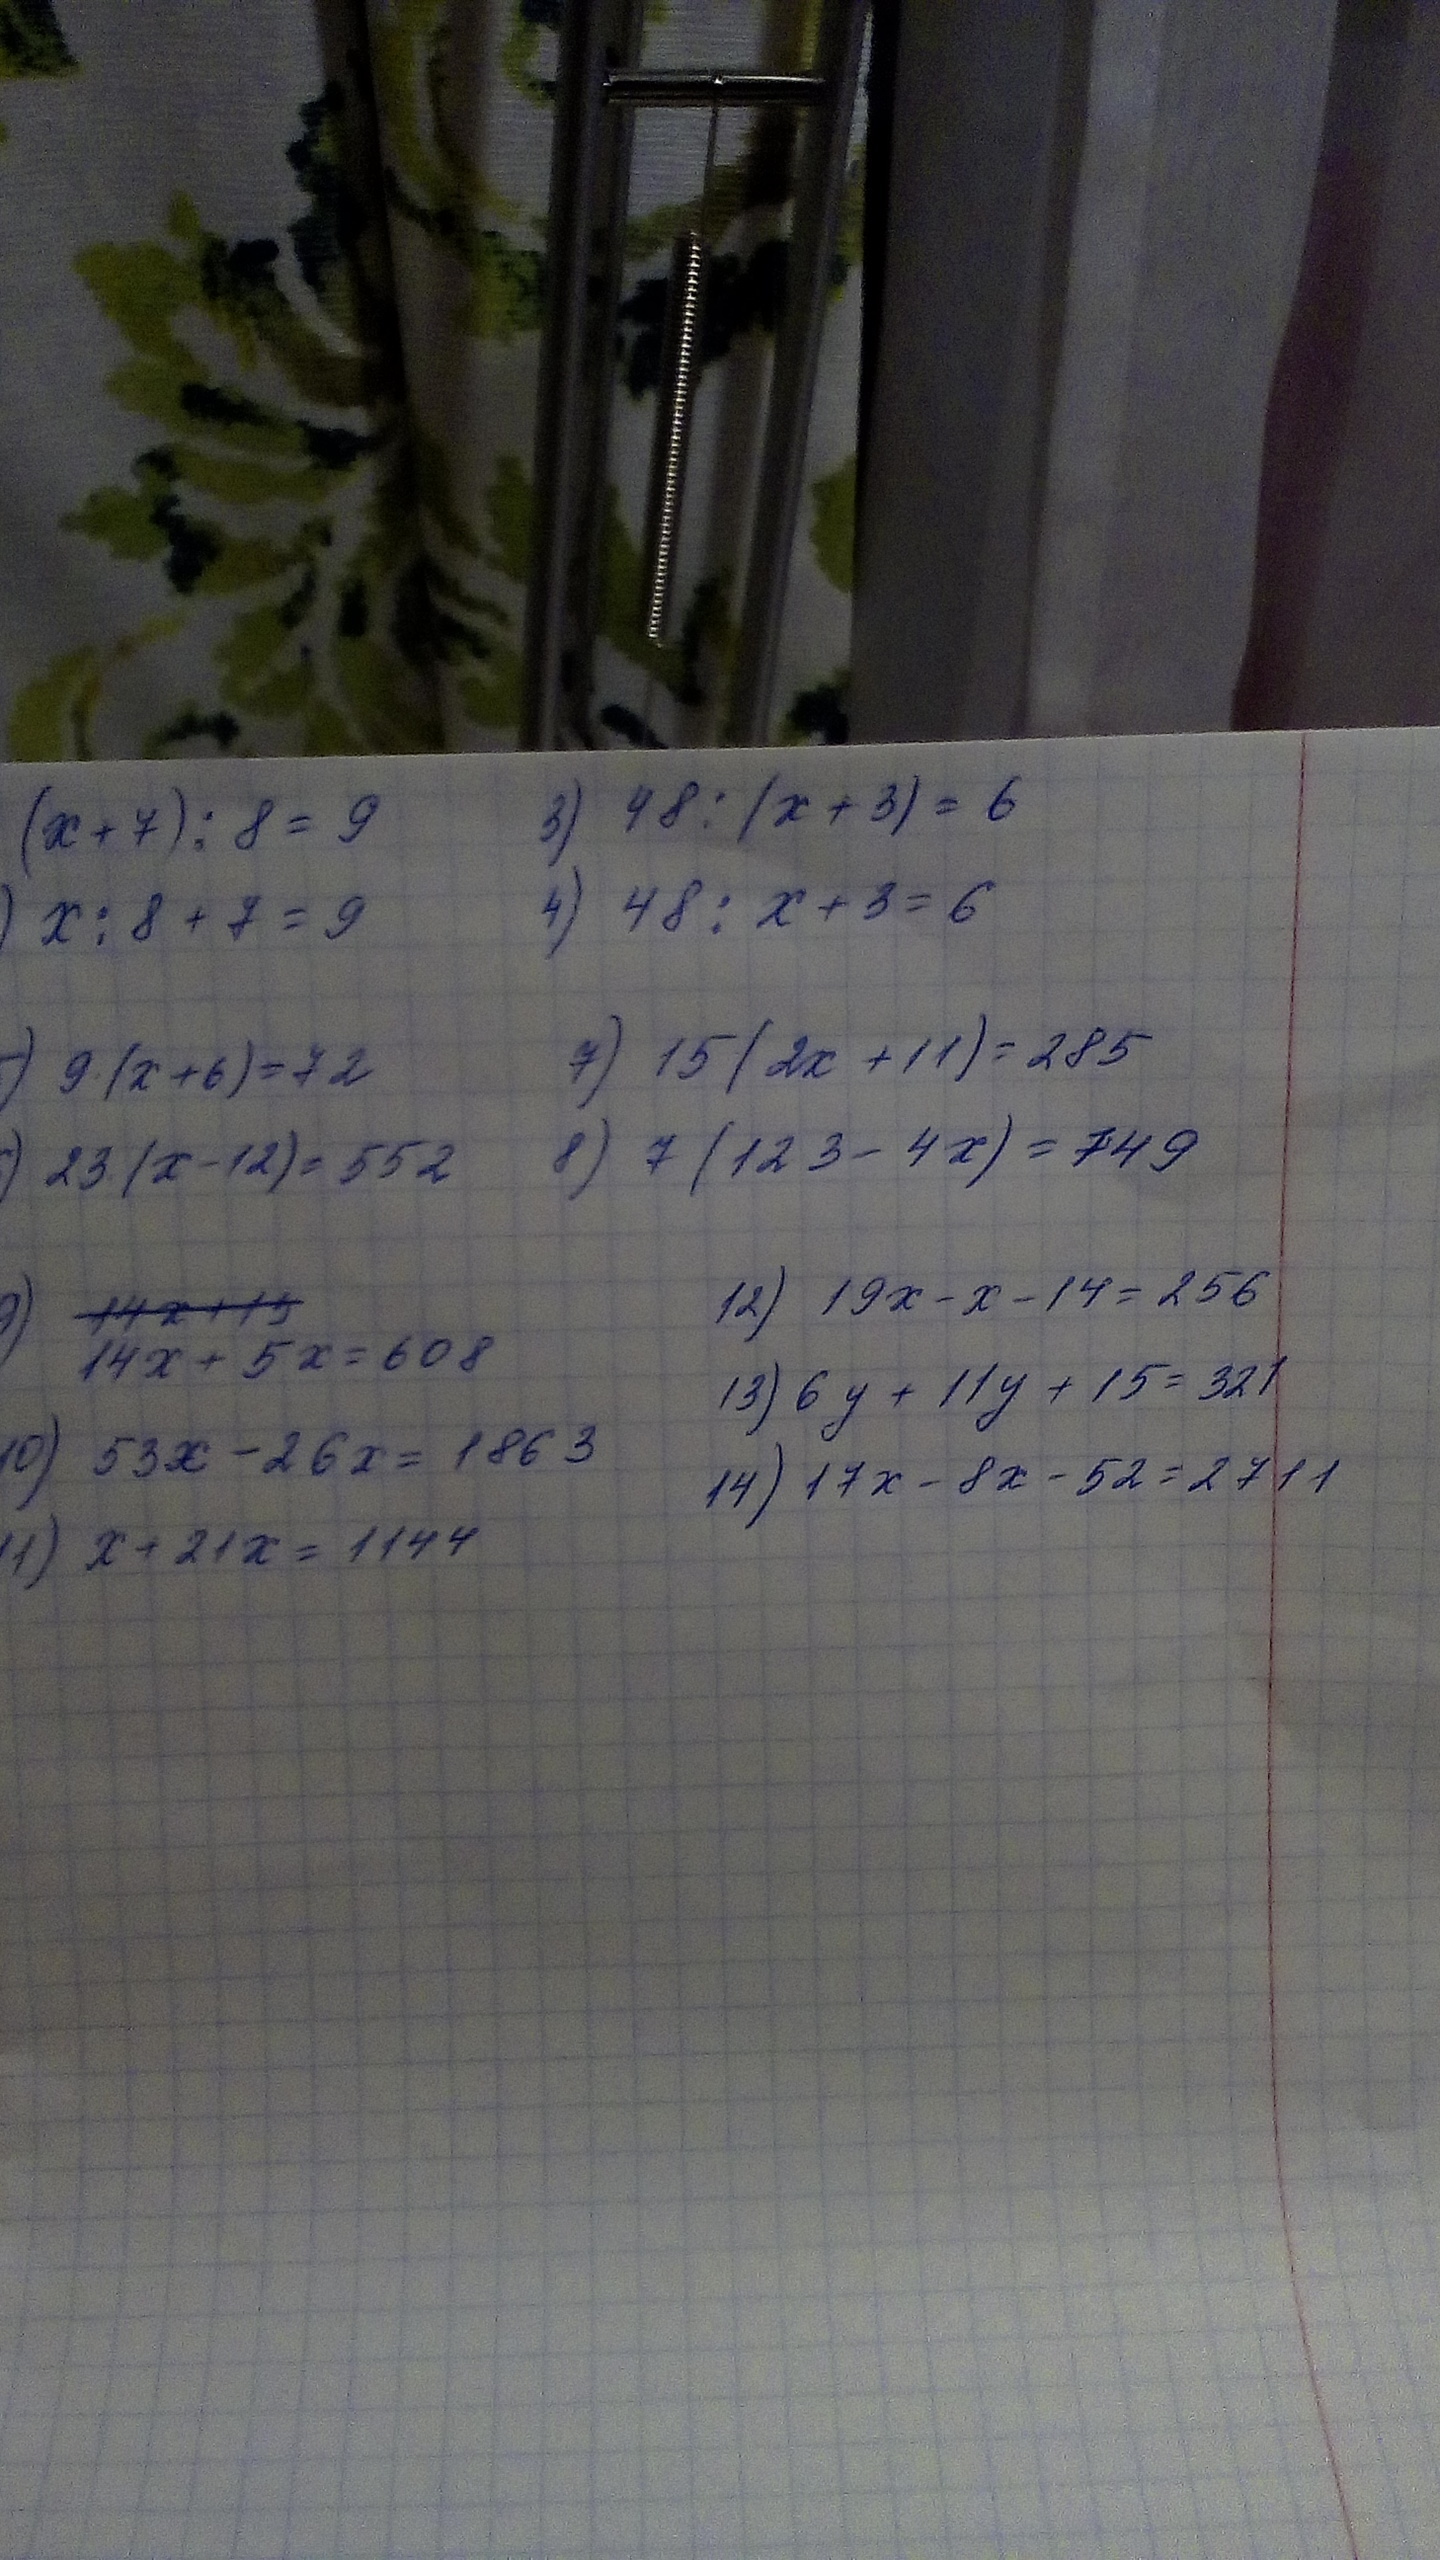 (x+7):8=9
3) 48:(x+3)=6
) x:8+7=9
4) 48:x+3=6
) 9·(x+6)=72
7) 15(2x+11)=285
) 23·(x-12)=552
8) 7(123-4x)=749
9) 14x+15
14x+5x=608
12) 19x-x-14=256
13) 6y+11y+15=321
10) 53x-26x=1863
14) 17x-8x-52=2711
11) x+21x=1144